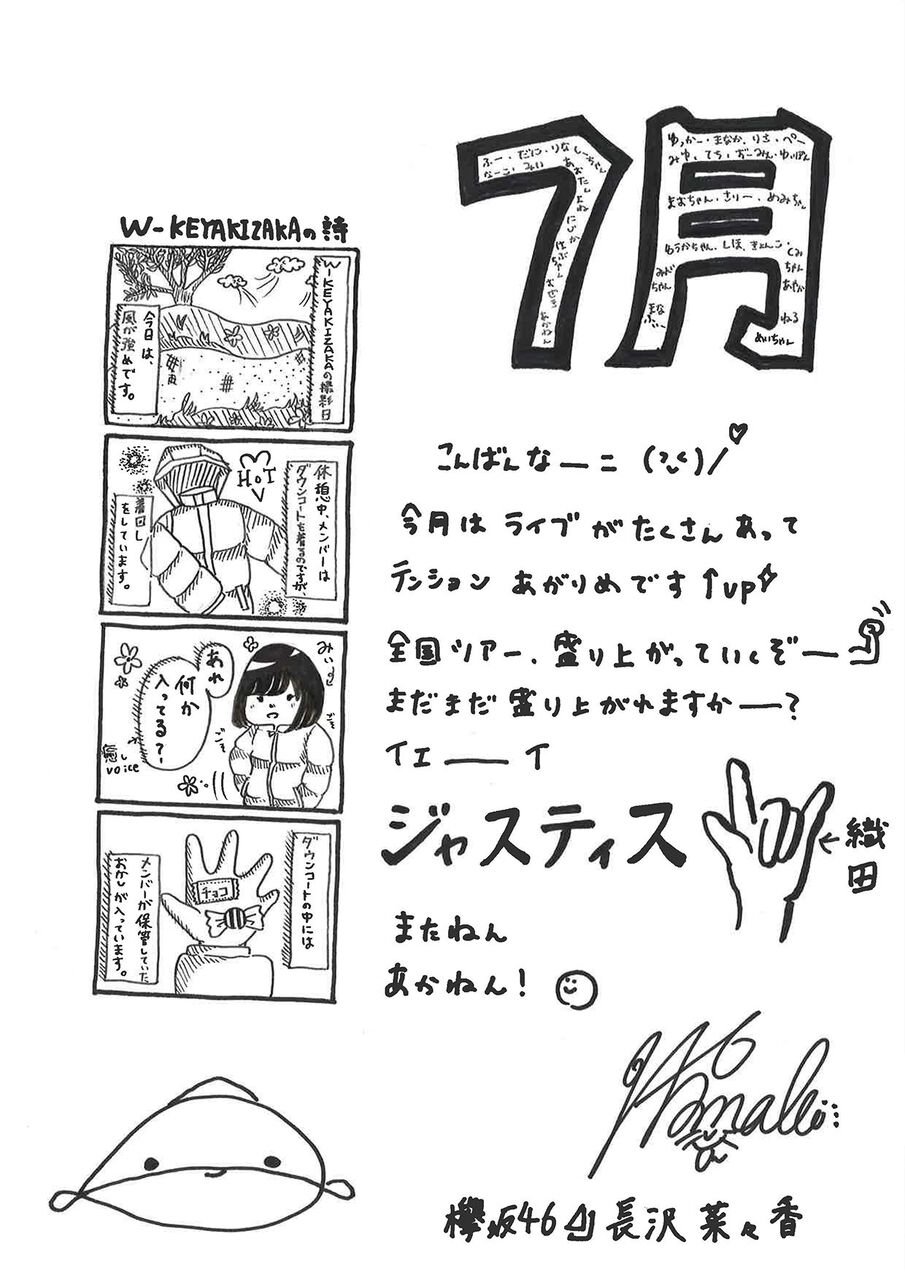 7月
ふー・だに・りな
しーちゃん
なーこ・みい
あかねん
ゆっかー・まなか・りさ・ぺー
みゆ、てち・おーみん・ゆいぽん
まおちゃん・さりー・めみちゃん
ゆうかちゃん・しほ・きょんこ・くみ
ちゃん
みどちゃん
あやか
まなふぃー
ねる
めいちゃん
W-KEYAKIZAKAの詩
W-KEYAKIZAKAの撮影日
今日は、
風が強めです。
休憩中、メンバーは
ダウンコートを着るのですが、
HOT
着回し
をしています。
みぃ
あれ
何か
入ってる?
voice
ダウンコートの中には
チョコ
メンバーが保管していた
おかしが入っています。
こんばんなーこ
今月はライブがたくさんあって
テンションあがりめです↑up
全国ツアー、盛り上がっていくぞー
まだまだ盛り上がれますかー?
イエーイ
ジャスティス
←織田
またねん
あかねん!
欅坂46 長沢菜々香